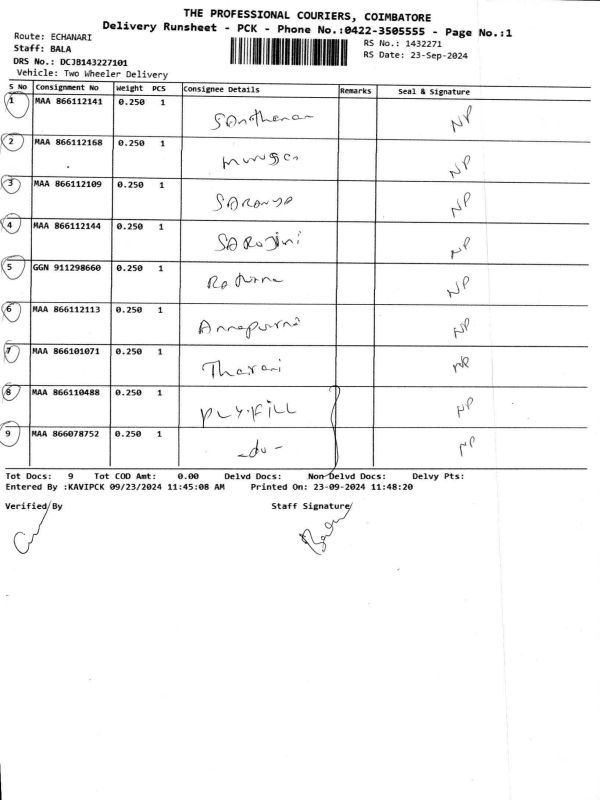 THE PROFESSIONAL COURIERS, COIMBATORE
Delivery Runsheet - PCK - Phone No.:0422-3505555 - Page No.:1
Route: ECHANARI
RS No.: 1432271
Staff: BALA
RS Date: 23-Sep-2024
DRS No.: DCJB143227101
Vehicle: Two Wheeler Delivery
S No Consignment No Weight PCS Consignee Details Remarks Seal & Signature
1 MAA 866112141 0.250 1 NP
2 MAA 866112168 0.250 1 NP
3 MAA 866112109 0.250 1 SARANYA NP
4 MAA 866112144 0.250 1 SAROJINI NP
5 GGN 911298660 0.250 1 NP
6 MAA 866112113 0.250 1 Annapurni NP
7 MAA 866101071 0.250 1 Tharani NP
8 MAA 866110488 0.250 1 PLY.FILL NP
9 MAA 866078752 0.250 1 -do- NP
Tot Docs: 9 Tot COD Amt: 0.00 Delvd Docs: Non Delvd Docs: Delvy Pts:
Entered By :KAVIPCK 09/23/2024 11:45:08 AM Printed On: 23-09-2024 11:48:20
Verified By Staff Signature